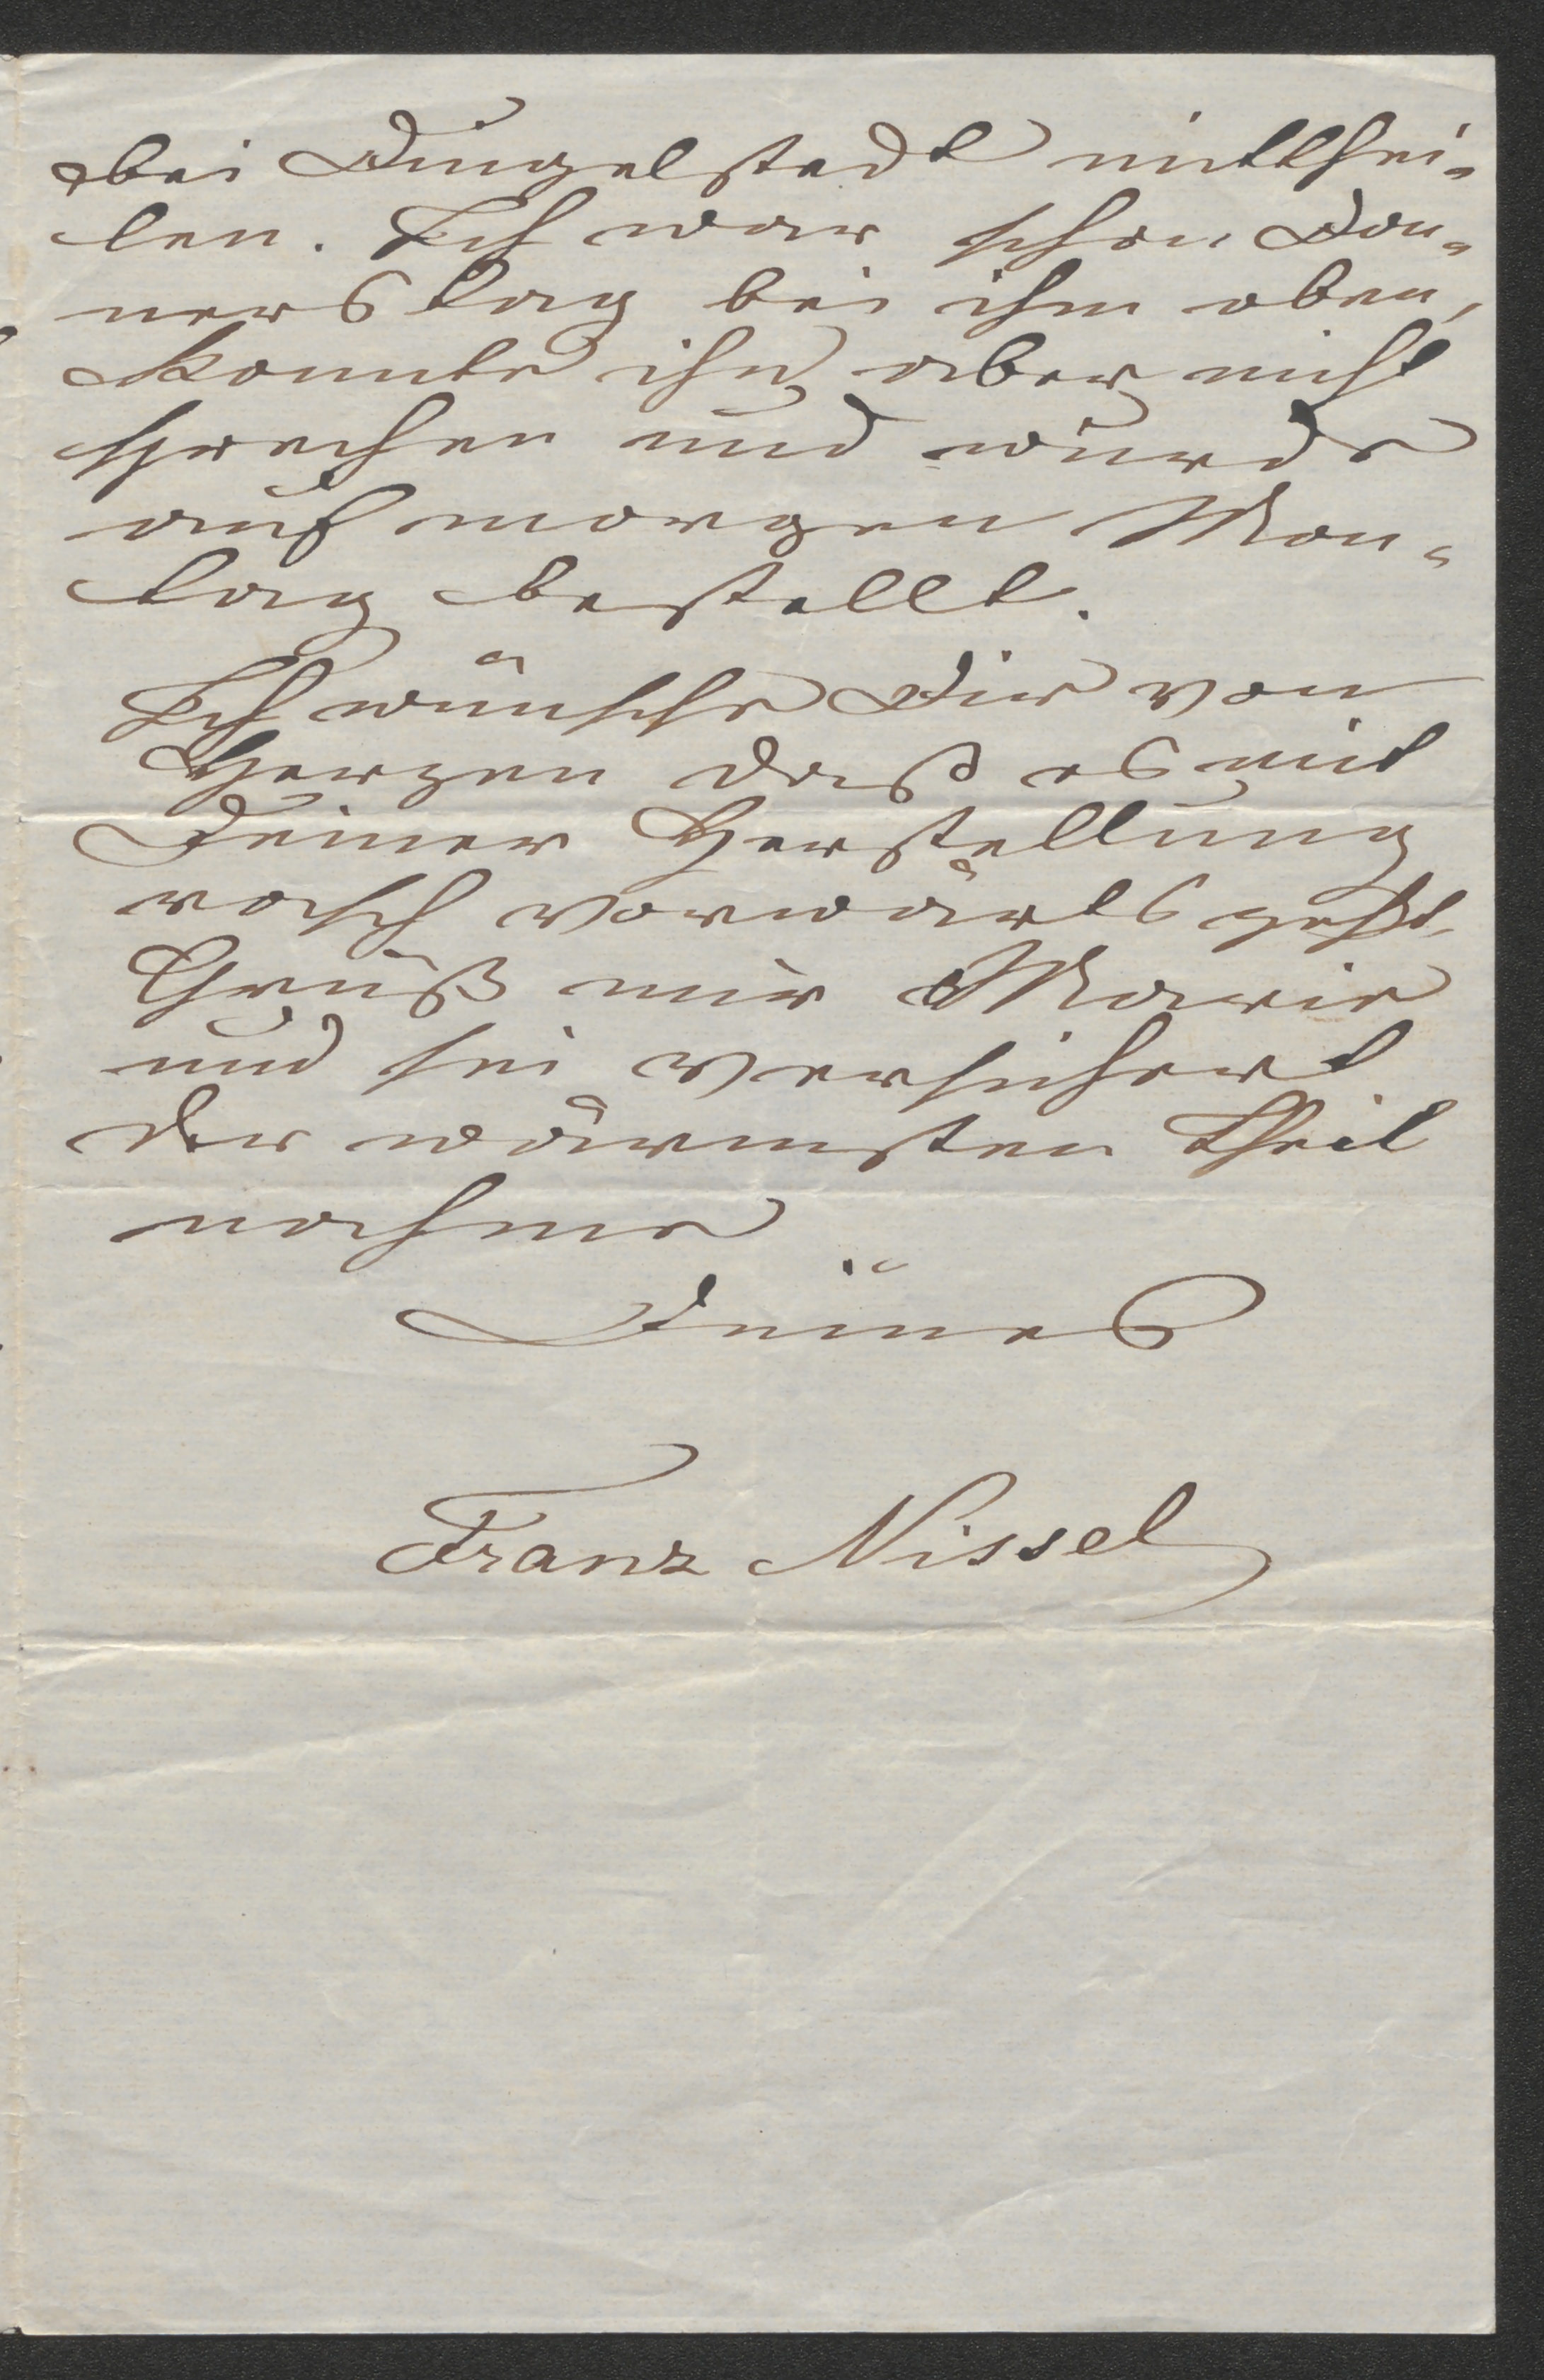 bei Dingelstedt mitthei-
len. Ich war schon Don-
nerstag bei ihm oben,
konnte ihn aber nicht
sprechen und wurde
auf morgen Mon-
tag bestellt.
Ich wünsche Dir von
Herzen daß es mit
Deiner Herstellung
rasch vorwärts geht.
Grüß mir Marie
und sei versichert
der wärmsten Theil
nahme
Deines
Franz Nissel